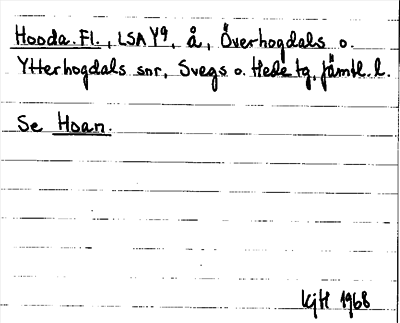 Hooda. Fl., LSA Y9, å, Överhogdals o.
Ytterhogdals snr, Svegs o. Hede tg, Jämtl. l.
Se Hoan.
KjH 1968